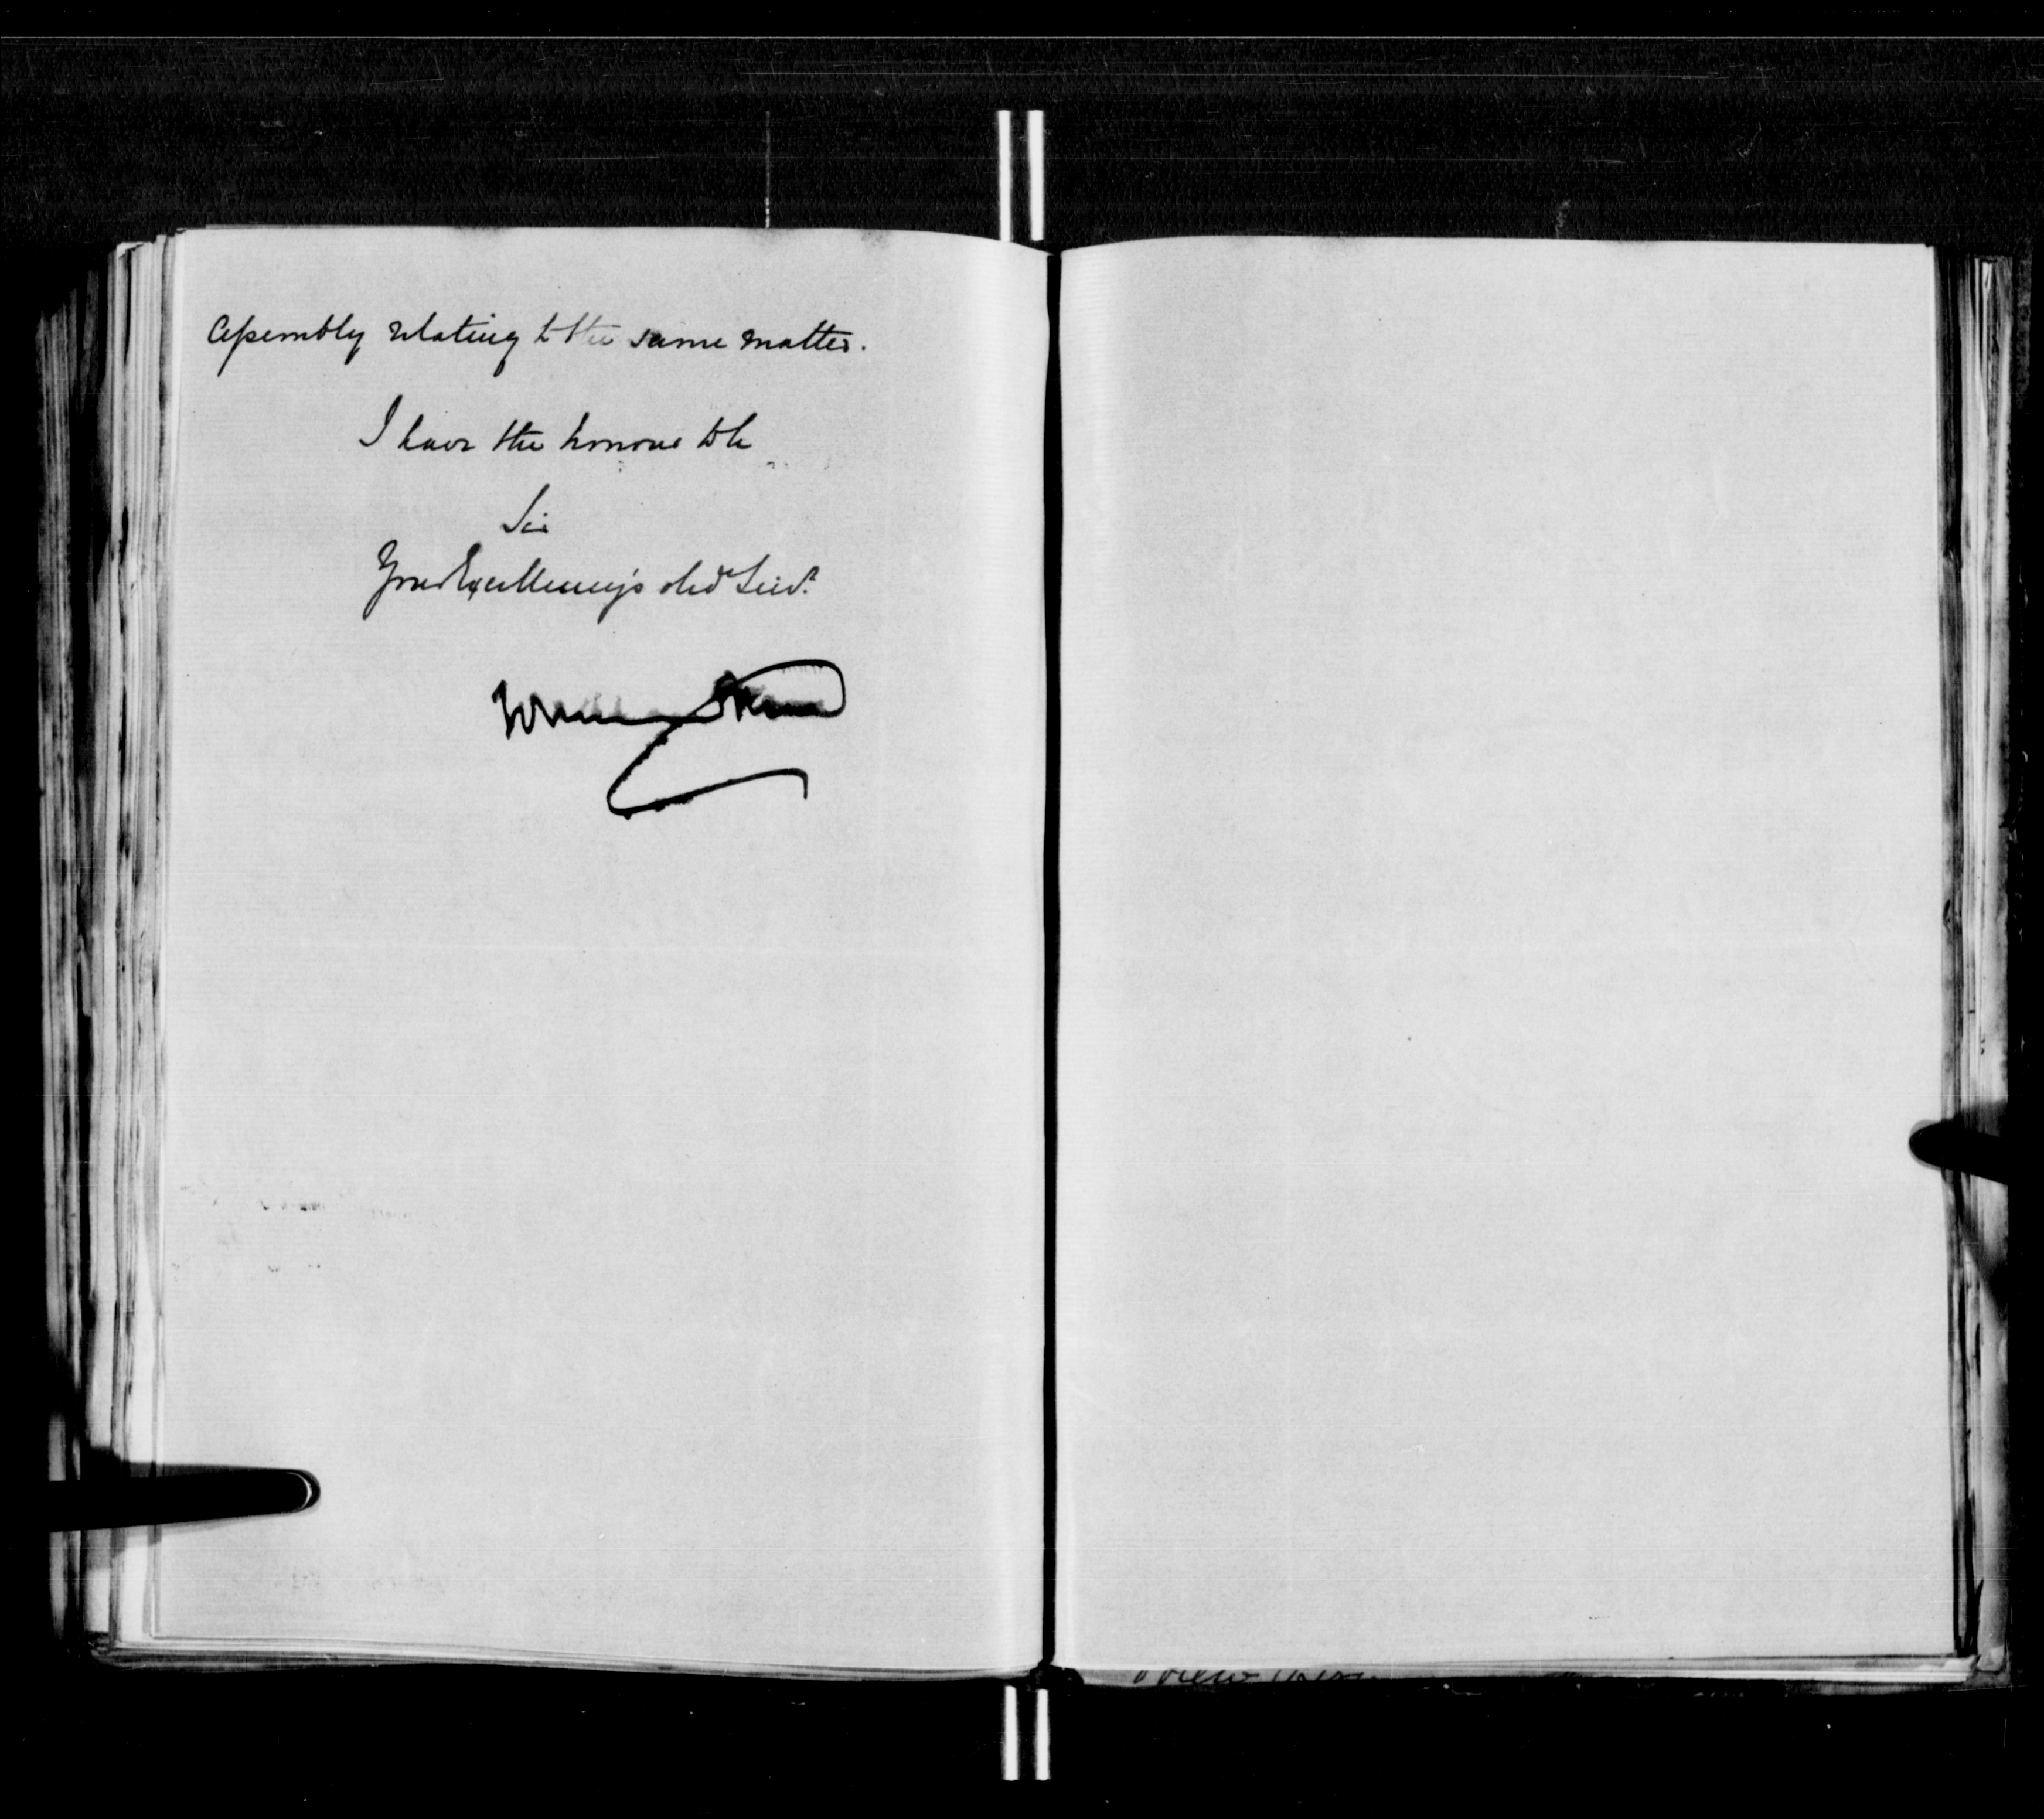 Assembly relating to the same matter.
I have the honour to be
Sir
Your Excellency's obedt Servt